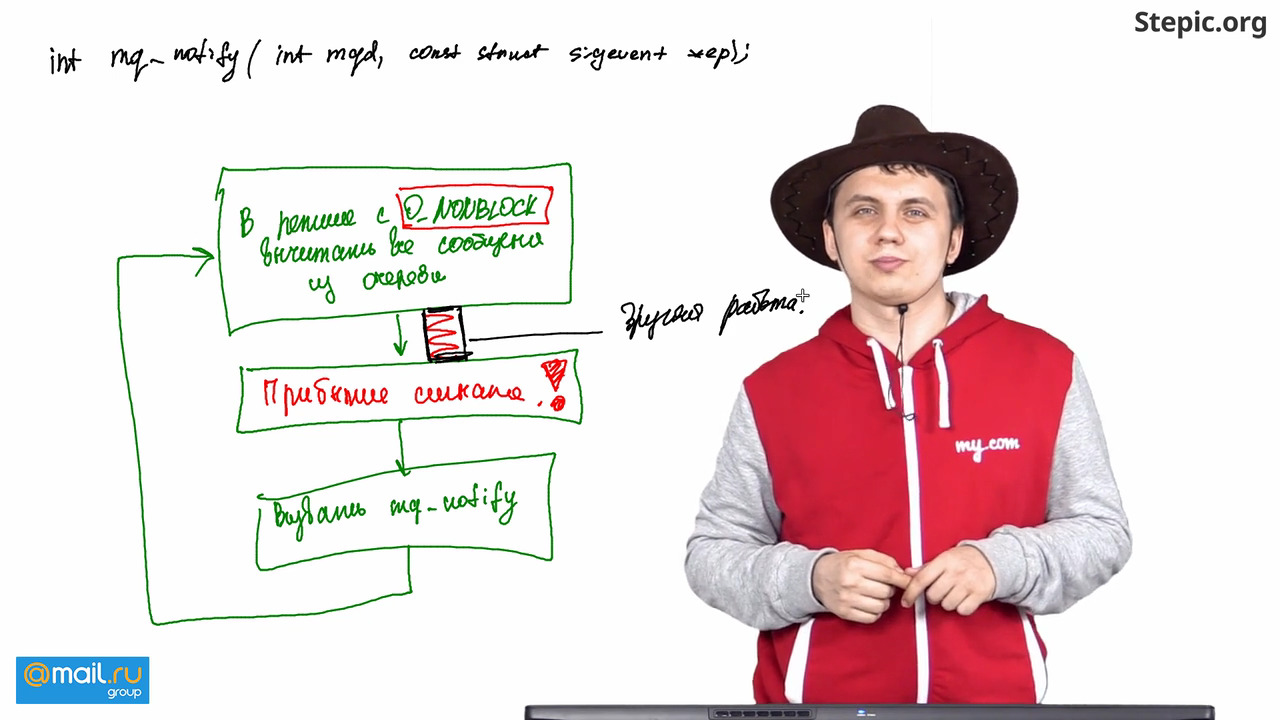 Stepic.org
int mq_notify( int mqd, const struct sigevent *ep);
В режиме с O_NONBLOCK
вычитать все сообщения
из очереди
Другая работа.
Прибытие сигнала.!
Вызвать mq_notify
my.com
@mail.ru
group